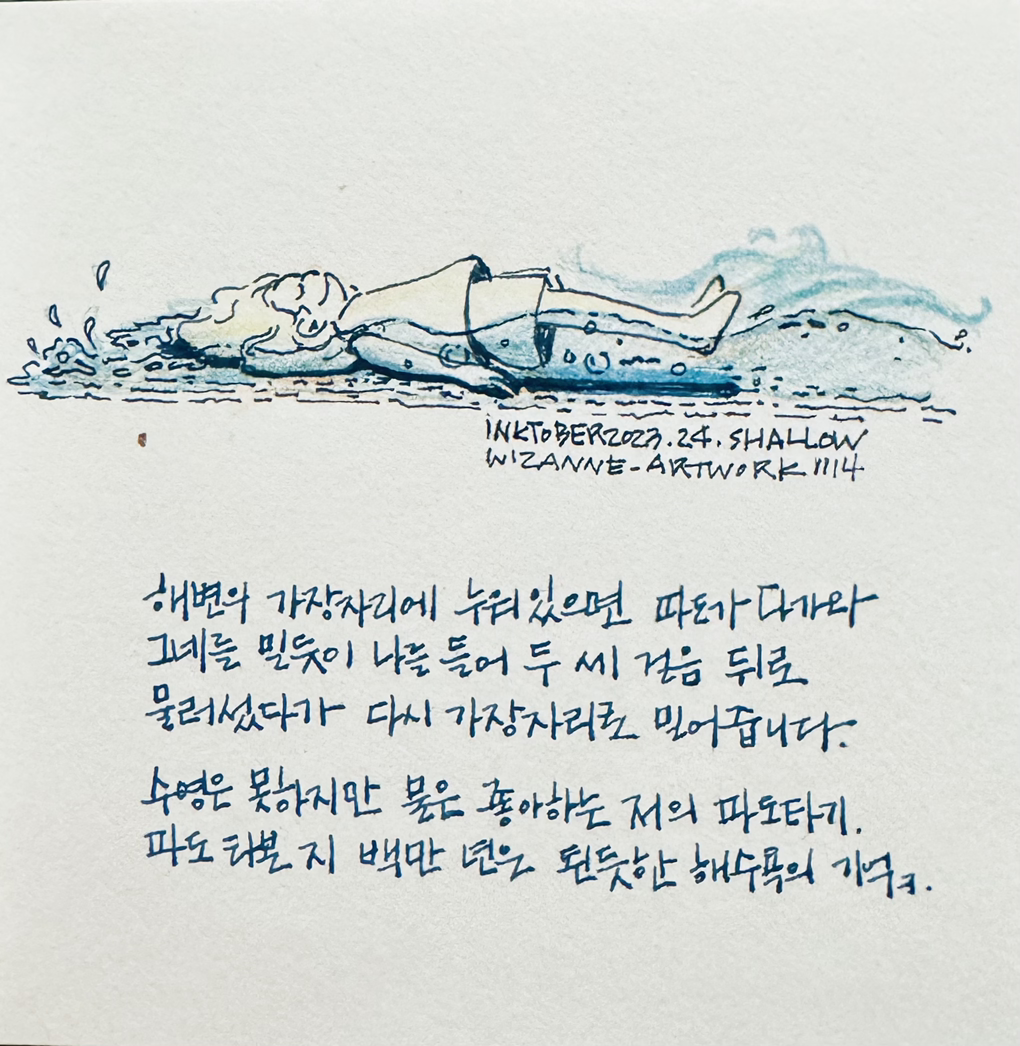 INKTOBER2023.24.SHALLOW
WIZANNE-ARTWORK 1114
해변의 가장자리에 누워있으면 파도가 다가와
그네를 밀듯이 나를 들어 두 세 걸음 뒤로
물러섰다가 다시 가장자리로 밀어줍니다.
수영은 못하지만 물은 좋아하는 저의 파도타기.
파도 타본 지 백만 년은 된듯한 해수욕의 기억ㅋ.